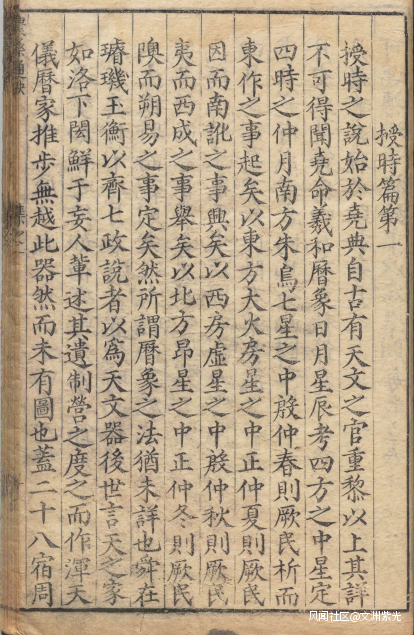 授時篇第一
授時之說始於堯典自古有天文之官重黎以上其詳
不可得聞堯命羲和曆象日月星辰考四方之中星定
四時之仲月南方朱鳥七星之中殷仲春則厥民析而
東作之事起矣以東方大火房星之中正仲夏則厥民
因而南訛之事興矣以西房虛星之中殷仲秋則厥民
夷而西成之事舉矣以北方昴星之中正仲冬則厥民
隩而朔易之事定矣然所謂曆象之法猶未詳也舜在
璿璣玉衡以齊七政說者以爲天文器後世言天之家
如洛下閎鮮于妄人輩述其遺制營之度之而作渾天
儀曆家推步無越此器然而未有圖也蓋二十八宿周
风闻社区@文洲紫光